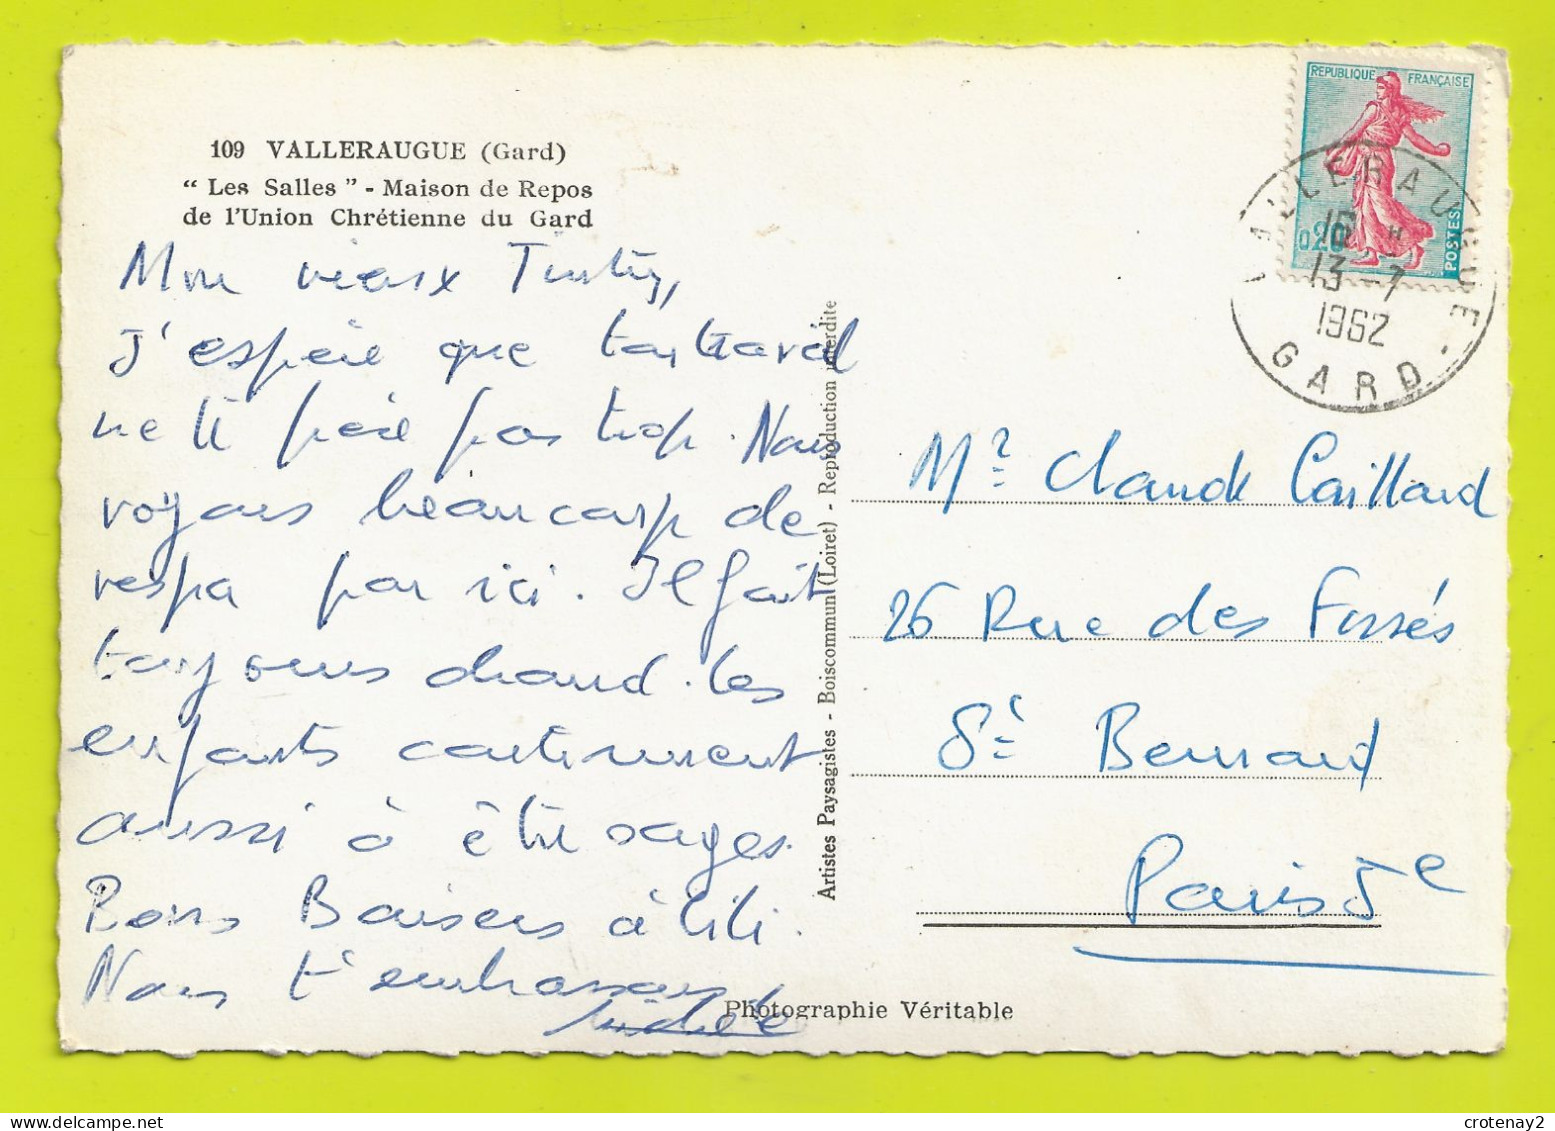 109 VALLERAUGUE (Gard)
“ Les Salles ” - Maison de Repos
de l'Union Chrétienne du Gard
Mon vieux
J'espère que ton travail
ne te pèse pas trop. Nous
voyons beaucoup de
vespa par ici. Il fait
toujours chaud. Les
enfants continuent
aussi à être sages.
Bons Baisers à Lili.
Nous t'embrassons
Michèle
Photographie Véritable
Artistes Paysagistes - Boiscommun (Loiret) - Reproduction interdite
REPUBLIQUE FRANÇAISE
0,20
POSTES
VALLERAUGUE
16 H
13 - 7
1962
GARD
Mr Claude Caillard
26 Rue des Fossés
St Bernard
Paris 5e
crotenay2